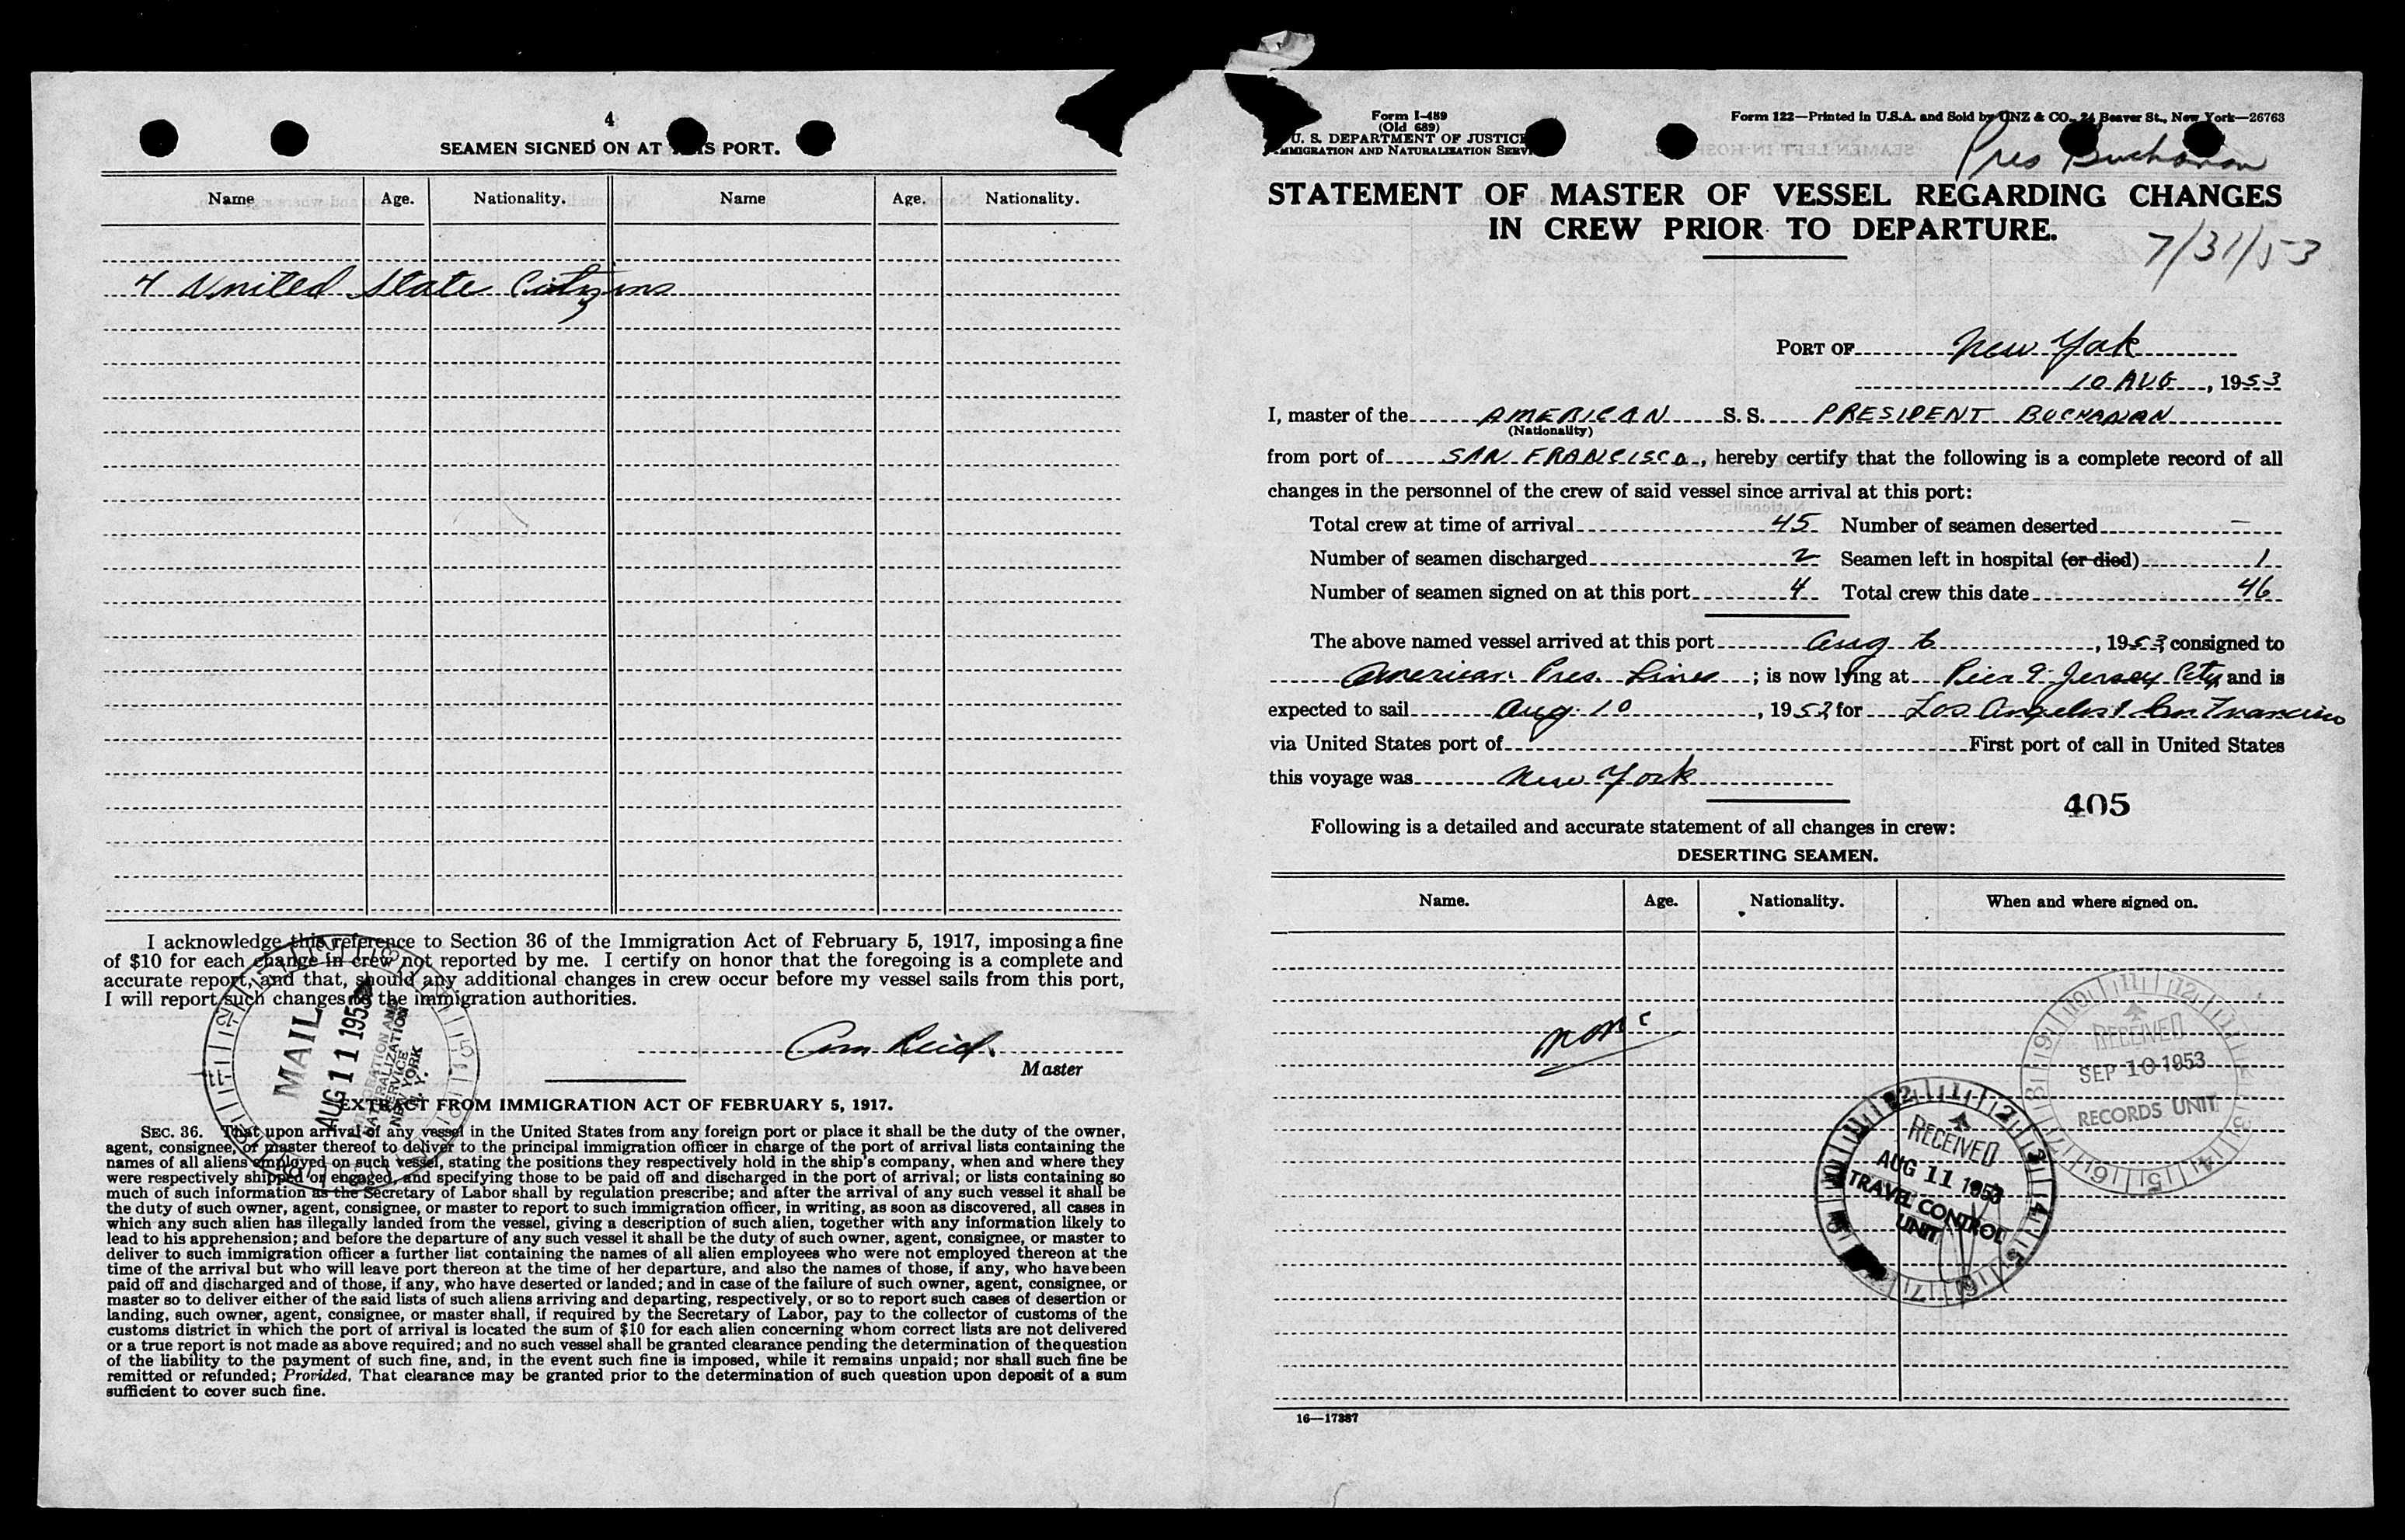 4
SEAMEN SIGNED ON AT THIS PORT.
Name Age. Nationality. Name Age. Nationality.
4 United State Citizens
I acknowledge this reference to Section 36 of the Immigration Act of February 5, 1917, imposing a fine
of $10 for each change in crew not reported by me. I certify on honor that the foregoing is a complete and
accurate report, and that, should any additional changes in crew occur before my vessel sails from this port,
I will report such changes to the immigration authorities.
Reid
Master
MAIL
AUG 11 1953
IMMIGRATION AND
NATURALIZATION
SERVICE
NEW YORK
N. Y.
EXTRACT FROM IMMIGRATION ACT OF FEBRUARY 5, 1917.
SEC. 36. That upon arrival of any vessel in the United States from any foreign port or place it shall be the duty of the owner,
agent, consignee, or master thereof to deliver to the principal immigration officer in charge of the port of arrival lists containing the
names of all aliens employed on such vessel, stating the positions they respectively hold in the ship's company, when and where they
were respectively shipped or engaged, and specifying those to be paid off and discharged in the port of arrival; or lists containing so
much of such information as the Secretary of Labor shall by regulation prescribe; and after the arrival of any such vessel it shall be
the duty of such owner, agent, consignee, or master to report to such immigration officer, in writing, as soon as discovered, all cases in
which any such alien has illegally landed from the vessel, giving a description of such alien, together with any information likely to
lead to his apprehension; and before the departure of any such vessel it shall be the duty of such owner, agent, consignee, or master to
deliver to such immigration officer a further list containing the names of all alien employees who were not employed thereon at the
time of the arrival but who will leave port thereon at the time of her departure, and also the names of those, if any, who have been
paid off and discharged and of those, if any, who have deserted or landed; and in case of the failure of such owner, agent, consignee, or
master so to deliver either of the said lists of such aliens arriving and departing, respectively, or so to report such cases of desertion or
landing, such owner, agent, consignee, or master shall, if required by the Secretary of Labor, pay to the collector of customs of the
customs district in which the port of arrival is located the sum of $10 for each alien concerning whom correct lists are not delivered
or a true report is not made as above required; and no such vessel shall be granted clearance pending the determination of the question
of the liability to the payment of such fine, and, in the event such fine is imposed, while it remains unpaid; nor shall such fine be
remitted or refunded; Provided, That clearance may be granted prior to the determination of such question upon deposit of a sum
sufficient to cover such fine.
Form I-489
(Old 689)
U. S. DEPARTMENT OF JUSTICE
IMMIGRATION AND NATURALIZATION SERV
Form 122—Printed in U.S.A. and Sold by UNZ & CO., 24 Beaver St., New York—26763
Pres Buchanan
STATEMENT OF MASTER OF VESSEL REGARDING CHANGES
IN CREW PRIOR TO DEPARTURE.
7/31/53
PORT OF New York
10 AUG, 1953
I, master of the AMERICAN S. S. PRESIDENT BUCHANAN
(Nationality)
from port of SAN FRANCISCO, hereby certify that the following is a complete record of all
changes in the personnel of the crew of said vessel since arrival at this port:
Total crew at time of arrival 45 Number of seamen deserted —
Number of seamen discharged 2 Seamen left in hospital (or died) 1
Number of seamen signed on at this port 4 Total crew this date 46
The above named vessel arrived at this port Aug 6, 1953 consigned to
American Pres. Lines; is now lying at Pier 9 Jersey City and is
expected to sail Aug. 10, 1953 for Los Angeles & San Francisco
via United States port of First port of call in United States
this voyage was New York
405
Following is a detailed and accurate statement of all changes in crew:
DESERTING SEAMEN.
Name. Age. Nationality. When and where signed on.
None
RECEIVED
SEP 10 1953
RECORDS UNIT
RECEIVED
AUG 11 1953
TRAVEL CONTROL
UNIT
16—17387